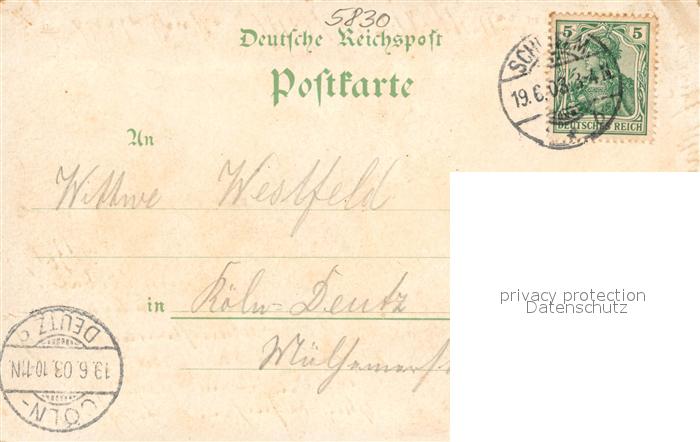 5830
Deutsche Reichspost
Postkarte
5 5
DEUTSCHES REICH
19.6.03. 3-4 N.
An
Wittwe Westfeld
in Köln-Deutz
Mülhemerst
privacy protection
Datenschutz
CÖLN-DEUTZ
19.6.03.10-11N.